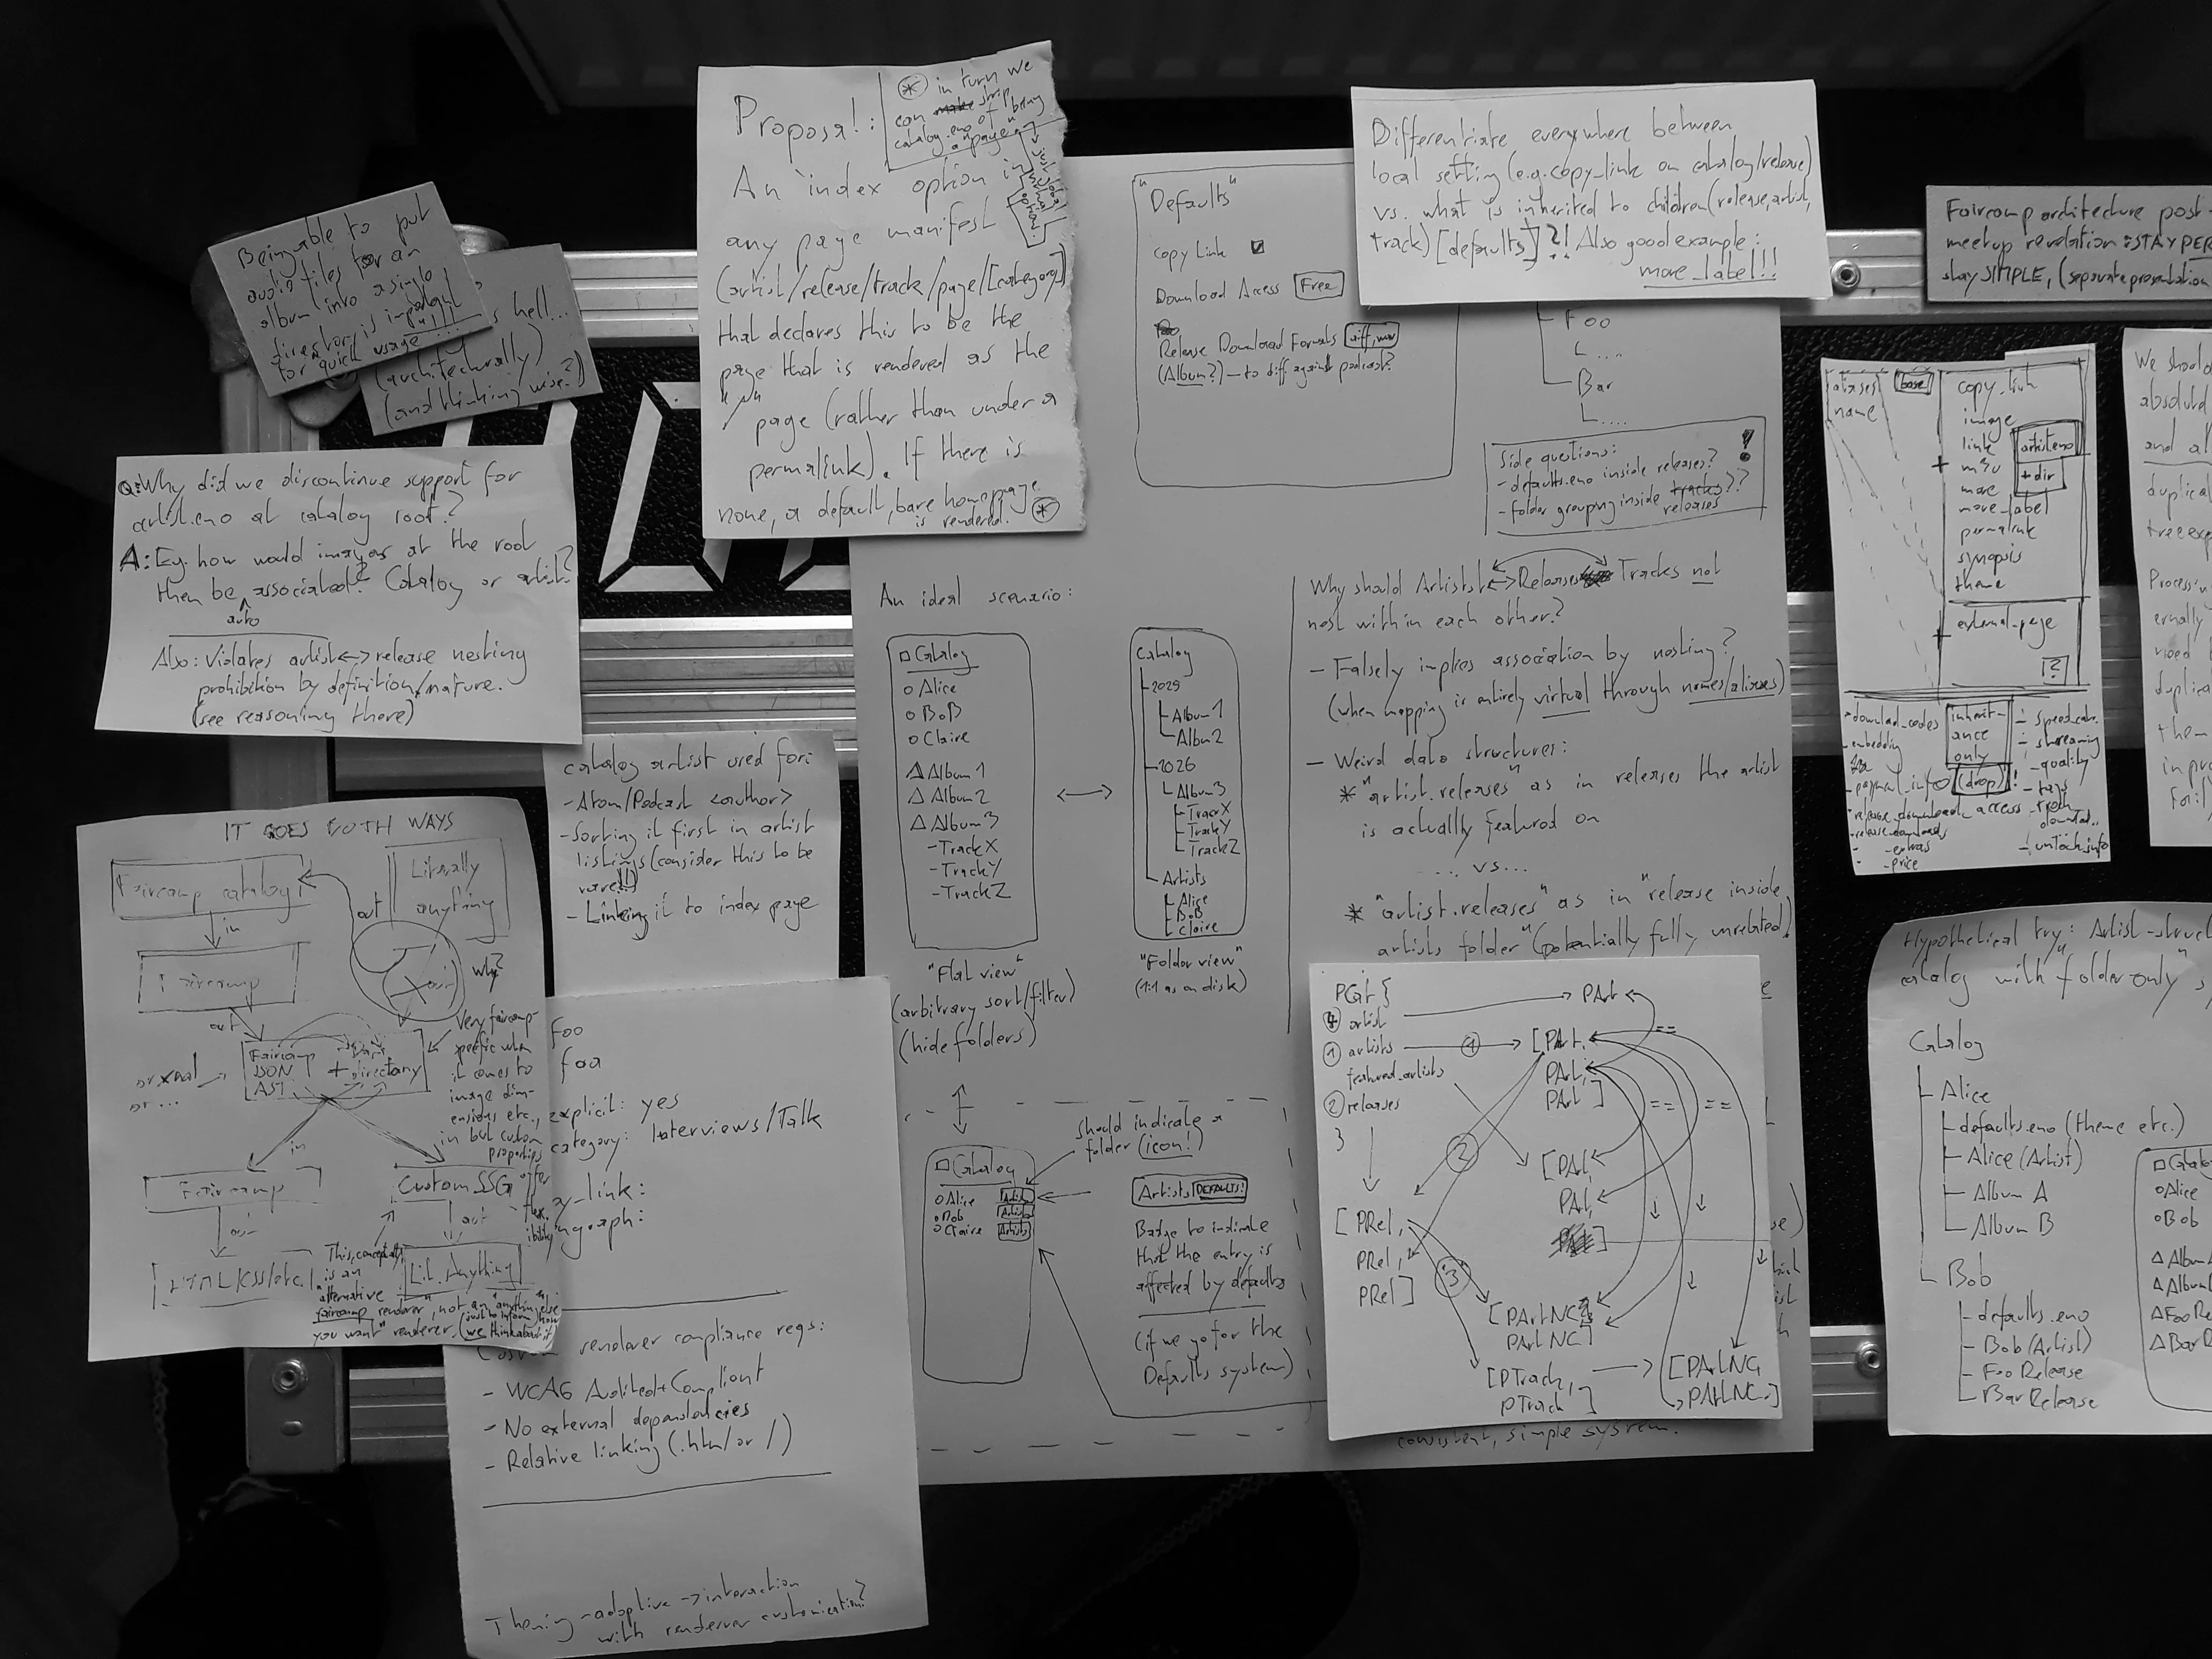 Being able to put
audio files for an
album into a single
directory is important
for "quick usage"...
hell...
(architecturally)
(and thinking wise?)
Proposal:
An index option in
any page manifest
(artist/release/track/page/[category])
that declares this to be the
page that is rendered as the
"/"
page (rather than under a
permalink). If there is
none, a default, bare homepage
is rendered. *
* in turn we
can strip
catalog.eno of being
a "page"
Differentiate everywhere between
local setting (e.g. copy_link on catalog/release)
vs. what is inherited to children (release, artist,
track) [defaults]?! Also good example:
more_label!!
Faircamp architecture post-
meetup revelation: STAY PER
stay SIMPLE, (separate presentation
"Defaults"
Copy Link
Download Access Free
Release Download Formats aiff, wav
(Album?) — to diff against podcast?
Foo
Bar
Side questions: !
- defaults.eno inside releases?
- folder grouping inside tracks??
releases
Q: Why did we discontinue support for
artist.eno at catalog root?
A: Eg. how would images at the root
then be associated? Catalog or artist?
auto
Also: Violates artist<->release nesting
prohibition by definition/nature.
(see reasoning there)
aliases
name
base
copy_link
image
link
m3u
more
more_label
permalink
synopsis
theme
artist.eno
+dir
external_page
?
download_codes
embedding
payment_info
release_download_access
release_downloads
- extras
- price
inherit-
ance
only
(drop)!
speed_calc.
streaming
quality
tags
track
downloa..
unlock_info
We shoul
absolut
and al
duplica
tree exp
Process
ernally
need
duplic
them
in pr
catalog artist used for:
- Atom/Podcast <author>
- Sorting it first in artist
listings (consider this to be
rare!!)
- Linking it to index page
An ideal scenario:
Catalog
Alice
Bob
Claire
Album 1
Album 2
Album 3
- Track X
- Track Y
- Track Z
"Flat view"
(arbitrary sort/filter)
(hide folders)
Catalog
2025
Album 1
Album 2
2026
Album 3
Track X
Track Y
Track Z
Artists
Alice
Bob
Claire
"Folder view"
(1:1 as on disk)
Why should Artists<->Releases Tracks not
nest within each other?
- Falsely implies association by nesting?
(when mapping is entirely virtual through names/aliases)
- Weird data structures:
* "artist.releases" as in releases the artist
is actually featured on
... vs...
* "artist.releases" as in "release inside
artists folder" (potentially fully unrelated!
should indicate a
folder (icon!)
Catalog
Alice Artists
Bob Artists
Claire Artists
Artists DEFAULTS!
Badge to indicate
that the entry is
affected by defaults
(if we go for the
Defaults system)
consistent, simple system.
IT GOES BOTH WAYS
Faircamp catalog
Literally
anything
in
out
Faircamp
why?
out
or xml
or ...
Faircamp
JSON
AST
+ directory
Very faircamp-
specific when
it comes to
image dim-
ensions etc.,
but custom
properties
offer
flex-
ibility
in
in
Faircamp
Custom SSG
out
out
HTML/CSS/etc.
Lit. Anything
This, conceptually,
is an
"alternative
faircamp renderer", not an "anything else
you want" renderer. (just to inform how
we think about it)
foo
foo
explicit: yes
category: Interviews/Talk
y_link:
ngraph:
Custom renderer compliance reqs:
- WCAG Audited+Compliant
- No external dependencies
- Relative linking (.html or /)
Theming-adaptive -> interaction
with renderer customization?
PCat {
4 artist
1 artists
featured_artists
2 releases
}
PArt
1
[PArt,
PArt,
PArt]
==
== ==
2
[PArt,
PArt,
]
[PRel,
PRel,
PRel]
3
[PArtNC,
PArtNC]
[PTrack,
PTrack]
[PArtNC,
PArtNC]
Hypothetical try: Artist-struct
catalog with "folder-only" s
Catalog
Alice
defaults.eno (theme etc.)
Alice (Artist)
Album A
Album B
Bob
defaults.eno
Bob (Artist)
Foo Release
Bar Release
Catalo
Alice
Bob
Album
Album
Foo Re
Bar R